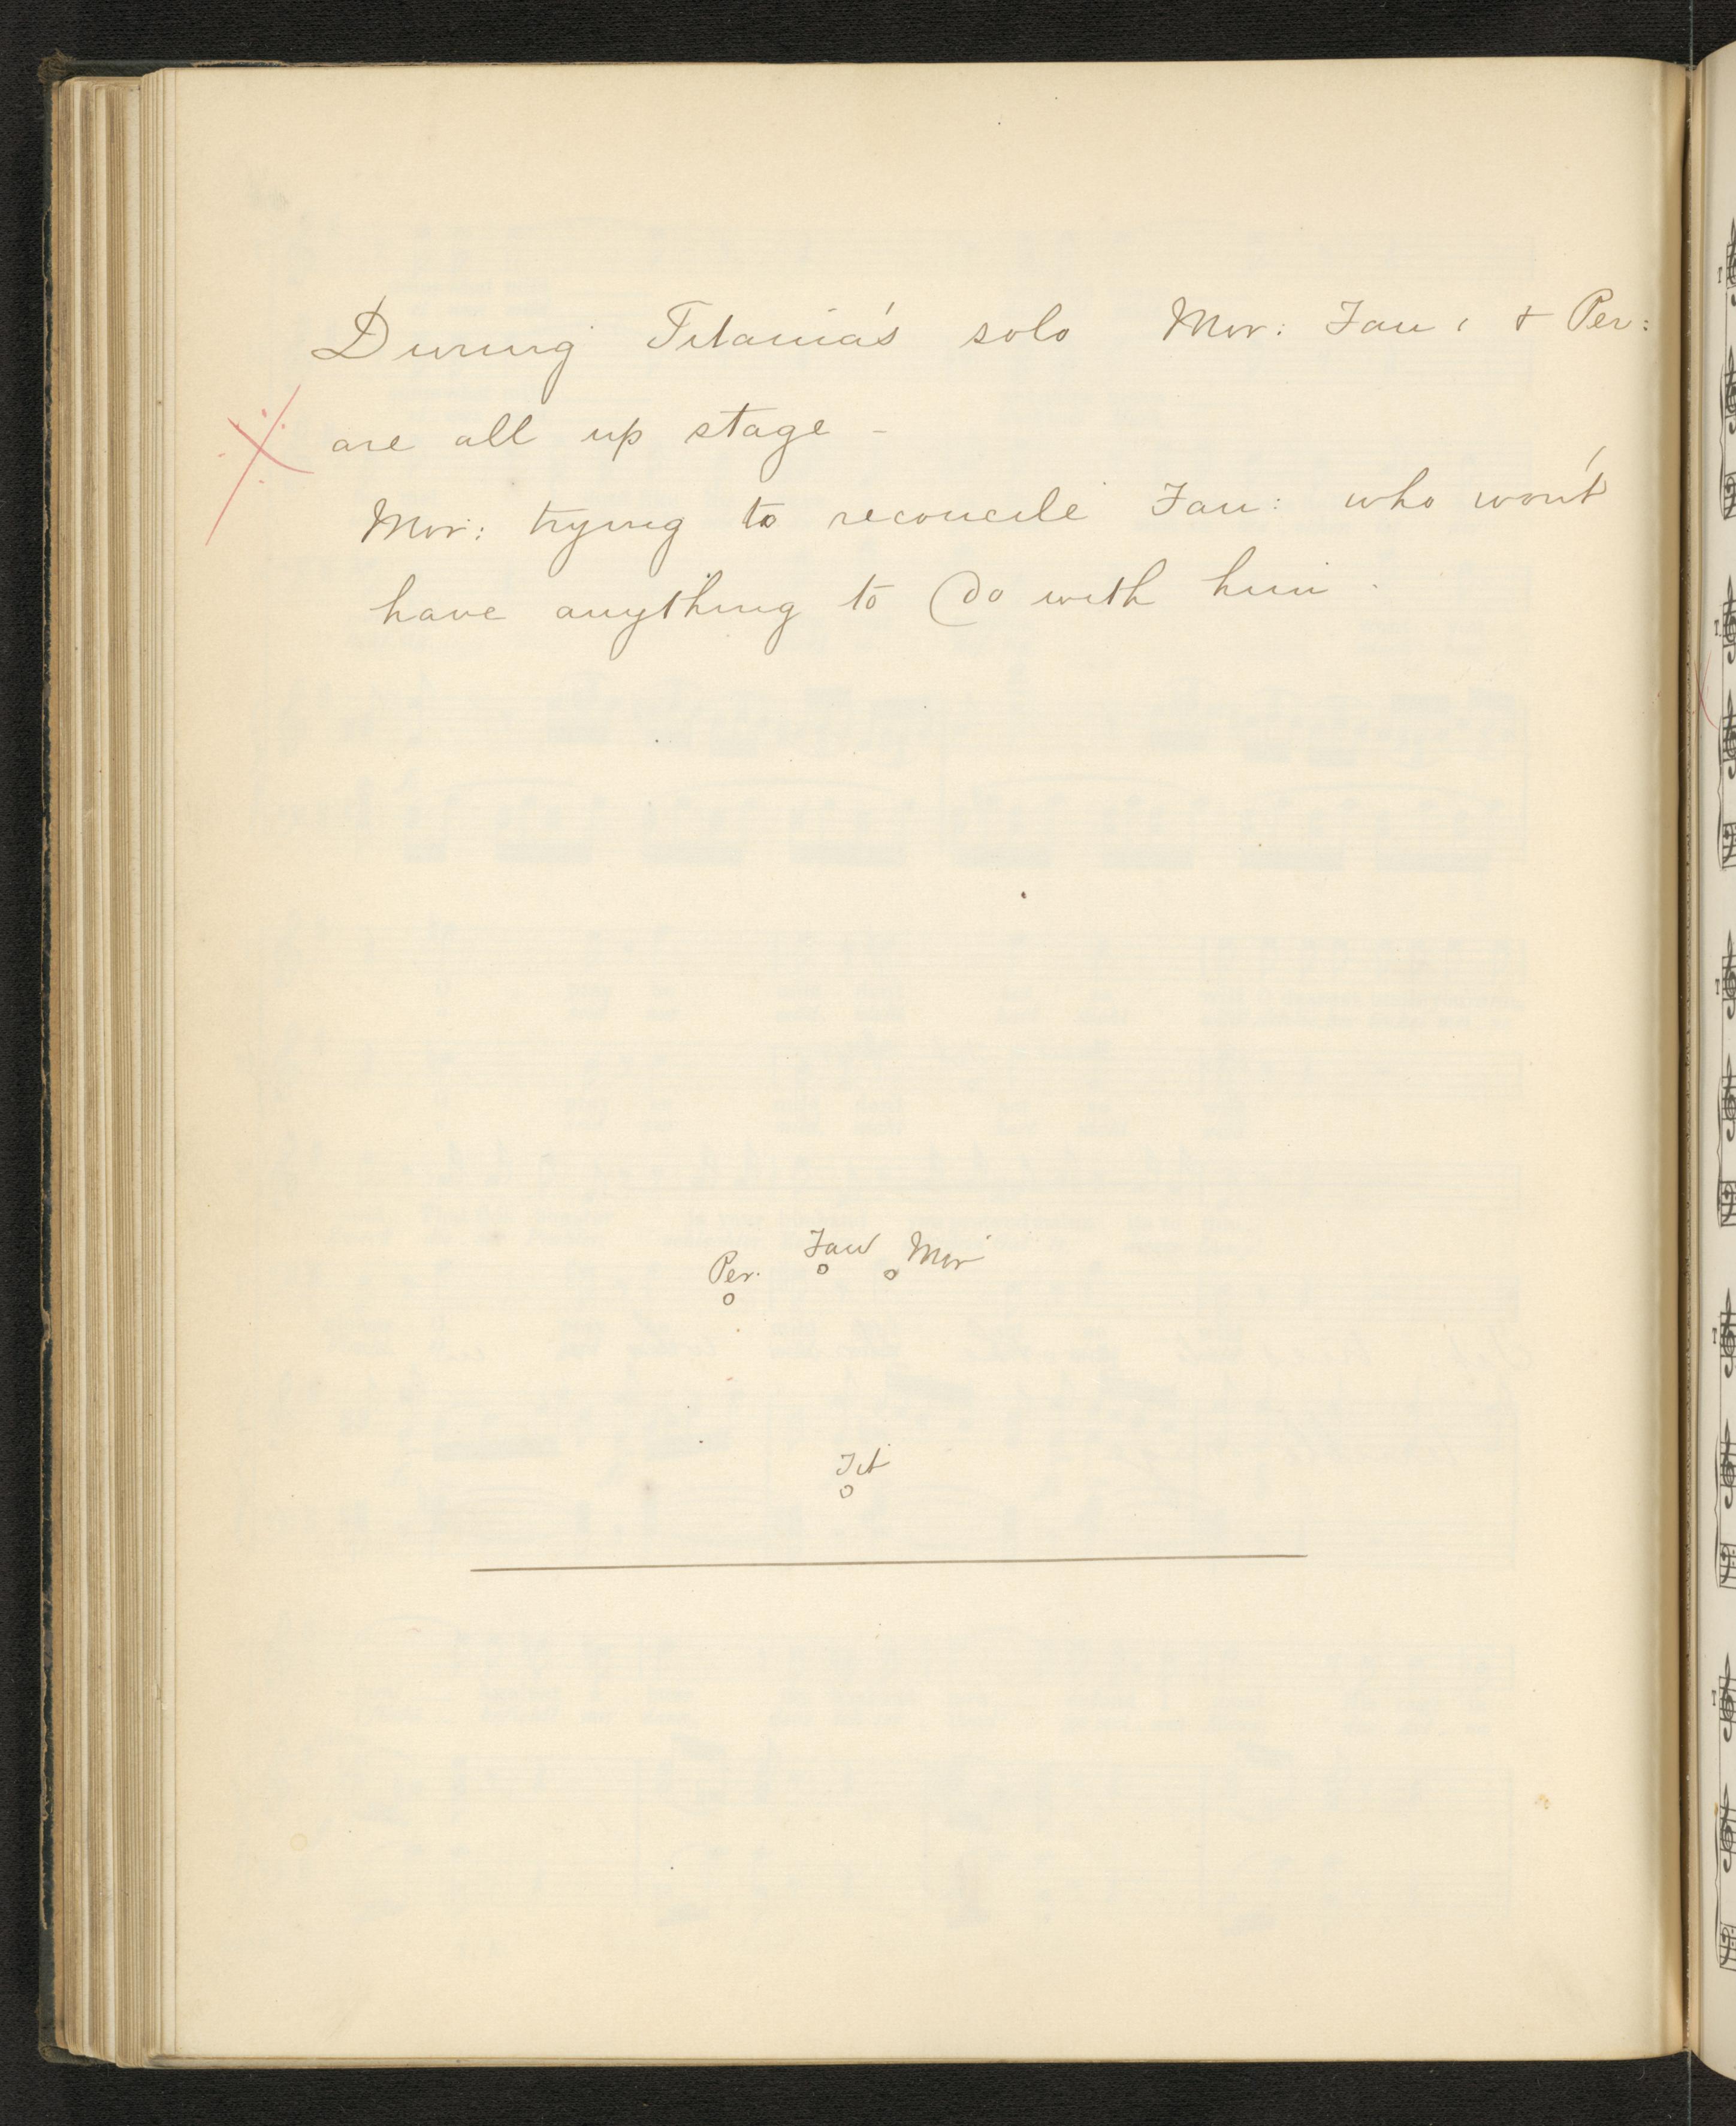 During Titania's solo Mor: Fau: & Per:
are all up stage -
Mor: trying to reconcile Fau: who won't
have anything to do with him.
Per. Fau Mor
Tit